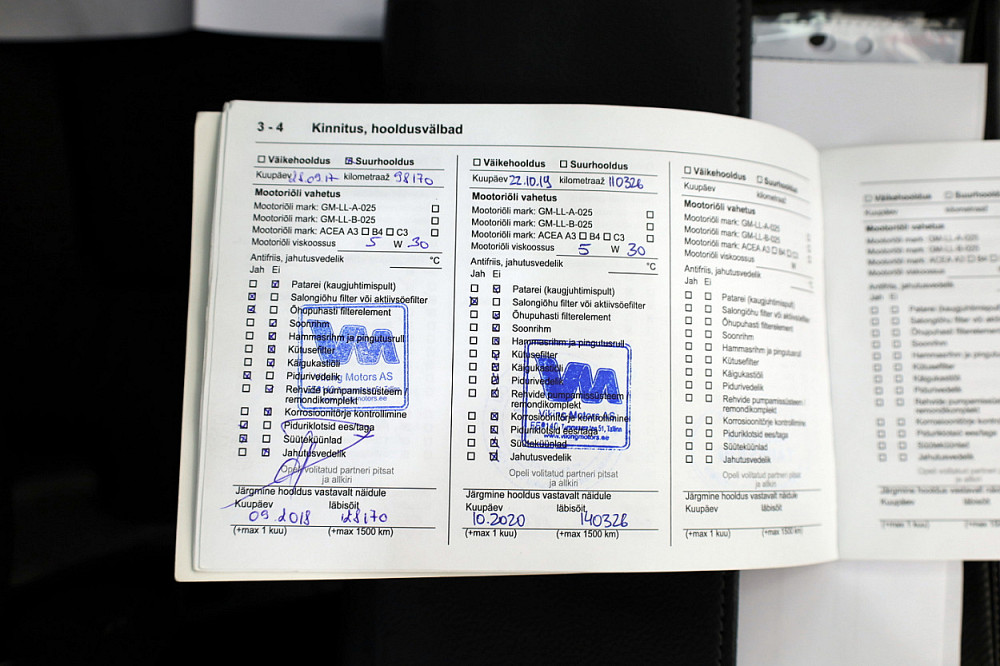 3 - 4 Kinnitus, hooldusvälbad
Väikehooldus Suurhooldus
Kuupäev 28.09.17 kilometraaž 98170
Mootoriõli vahetus
Mootoriõli mark: GM-LL-A-025
Mootoriõli mark: GM-LL-B-025
Mootoriõli mark: ACEA A3 B4 C3
Mootoriõli viskoossus 5 W 30
Antifriis, jahutusvedelik °C
Jah Ei
Patarei (kaugjuhtimispult)
Salongiõhu filter või aktiivsöefilter
Õhupuhasti filterelement
Soonrihm
Hammasrihm ja pingutusrull
Kütusefilter
Käigukastiõli
Pidurivedelik
Viking Motors AS
Rehvide pumpamissüsteem /
remondikomplekt
Korrosioonitõrje kontrollimine
Piduriklotsid ees/taga
Süüteküünlad
Jahutusvedelik
Opeli volitatud partneri pitsat
ja allkiri
Järgmine hooldus vastavalt näidule
Kuupäev läbisõit
09.2018 128170
(+max 1 kuu) (+max 1500 km)
Väikehooldus Suurhooldus
Kuupäev 22.10.19 kilometraaž 110326
Mootoriõli vahetus
Mootoriõli mark: GM-LL-A-025
Mootoriõli mark: GM-LL-B-025
Mootoriõli mark: ACEA A3 B4 C3
Mootoriõli viskoossus 5 W 30
Antifriis, jahutusvedelik °C
Jah Ei
Patarei (kaugjuhtimispult)
Salongiõhu filter või aktiivsöefilter
Õhupuhasti filterelement
Soonrihm
Hammasrihm ja pingutusrull
Kütusefilter
Käigukastiõli
Pidurivedelik
Rehvide pumpamissüsteem /
remondikomplekt
Viking Motors AS
Korrosioonitõrje kontrollimine
Tammsaare tee 51, Tallinn
Piduriklotsid ees/taga
www.vikingmotors.ee
Süüteküünlad
Jahutusvedelik
Opeli volitatud partneri pitsat
ja allkiri
Järgmine hooldus vastavalt näidule
Kuupäev läbisõit
10.2020 140326
(+max 1 kuu) (+max 1500 km)
Väikehooldus Suurhooldus
Kuupäev kilometraaž
Mootoriõli vahetus
Mootoriõli mark: GM-LL-A-025
Mootoriõli mark: GM-LL-B-025
Mootoriõli mark: ACEA A3 B4 C3
Mootoriõli viskoossus W
Antifriis, jahutusvedelik
Jah Ei
Patarei (kaugjuhtimispult)
Salongiõhu filter või aktiivsöefilter
Õhupuhasti filterelement
Soonrihm
Hammasrihm ja pingutusrull
Kütusefilter
Käigukastiõli
Pidurivedelik
Rehvide pumpamissüsteem /
remondikomplekt
Korrosioonitõrje kontrollimine
Piduriklotsid ees/taga
Süüteküünlad
Jahutusvedelik
Opeli volitatud partneri pitsat
ja allkiri
Järgmine hooldus vastavalt näidule
Kuupäev läbisõit
(+max 1 kuu) (+max 1500 km)
Väikehooldus Suurhooldus
Kuupäev kilometraaž
Mootoriõli vahetus
Mootoriõli mark: GM-LL-A-025
Mootoriõli mark: GM-LL-B-025
Mootoriõli mark: ACEA A3 B4
Mootoriõli viskoossus
Antifriis, jahutusvedelik
Jah Ei
Patarei
Salongiõhu filter
Õhupuhasti filterelement
Soonrihm
Hammasrihm ja
Kütusefilter
Käigukastiõli
Pidurivedelik
Rehvide
remondikomplekt
Korrosioonitõrje
Piduriklotsid ees/taga
Süüteküünlad
Jahutusvedelik
Opeli volitatud
ja allkiri
Järgmine hooldus vastavalt
Kuupäev
(+max 1 kuu)